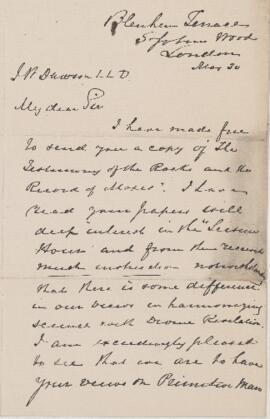 Blenheim Terrace
St Johns Wood
London
May 30
J W Dawson L L D
My dear Sir
I have made free
to send you a copy of "The
Testimony of the Rocks and the
Record of Moses". I have
read your papers with
deep interest in the "Leisure
Hour" and from them received
much instruction notwithstanding
that there is some difference
in our views in harmonizing
science with Divine Revelation.
I am exceedingly pleased
to see that we are to have
your views on Primitive Man